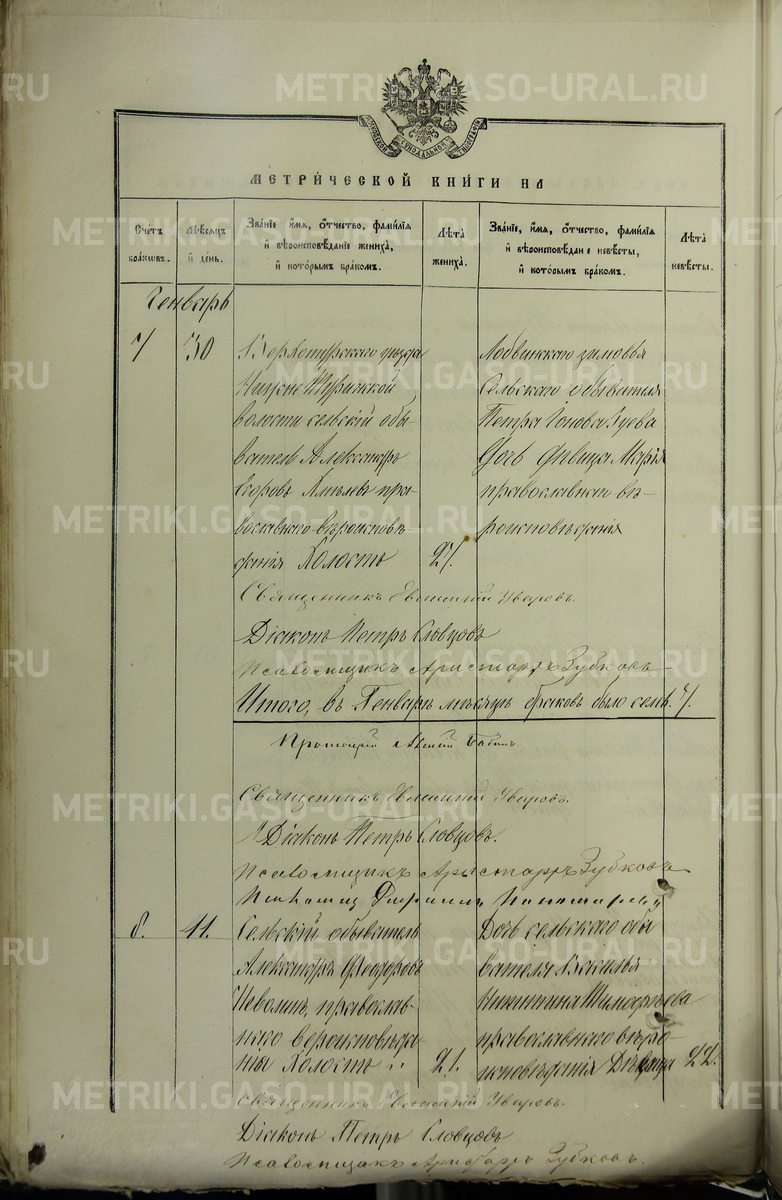 МЕТРИ́ЧЕСКОЙ КНИ́ГИ НА
Сче́тъ бра́ковъ.
Мѣ́сяцъ и҆ де́нь.
Зва́нїе, и҆́мя, ѻ҆́тчество, фами́лїя и҆ вѣроисповѣ́данїе жениха̀, и҆ кото́рымъ бра́комъ.
Лѣ́та жениха̀.
Зва́нїе, и҆́мя, ѻ҆́тчество, фами́лїя и҆ вѣроисповѣ́данїе невѣ́сты, и҆ кото́рымъ бра́комъ.
Лѣ́та невѣ́сты.
Генварь
7
30
Верхотурскаго уѣзда
Нижне Туринской
волости сельскій обы-
ватель Александръ
Егоровъ пра-
вославнаго вѣроисповѣ-
данія Холостъ
27.
Лобвинскаго зимовья
Сельскаго обывателя
Петра Іонова Гуева
дочь дѣвица Марія
православнаго вѣ-
роисповѣданія
Священникъ Евгеній Уваровъ.
Діаконъ Петръ Словцовъ
Псаломщикъ Аристархъ Зубковъ
Итого, въ Генварѣ мѣсяцѣ браковъ было семь. 7.
Протоіерей
Священникъ Евгеній Уваровъ.
Діаконъ Петръ Словцовъ.
Псаломщикъ Аристархъ Зубковъ
8.
11.
Сельскій обыватель
Александръ Ѳеодоровъ
Неволинъ, православ-
наго вероисповѣда-
нія Холостъ
21.
Дочь сельскаго обы
вателя Василья
Никитина Тимофѣева
православнаго вѣро-
исповѣданія Дѣвица
22.
Священникъ Евгеній Уваровъ.
Діаконъ Петръ Словцовъ
Псаломщикъ Аристархъ Зубковъ.
METRIKI.GASO-URAL.RU